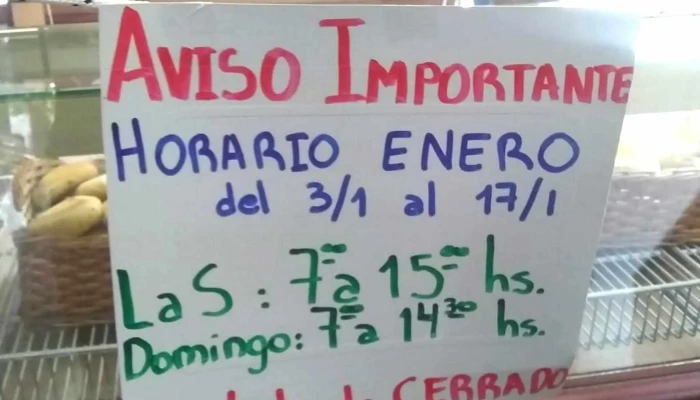 AVISO IMPORTANTE
HORARIO ENERO
del 3/1 al 17/1
LaS: 7⁰⁰a 15⁰⁰ hs.
Domingo: 7⁰⁰a 14³⁰ hs.
CERRADO